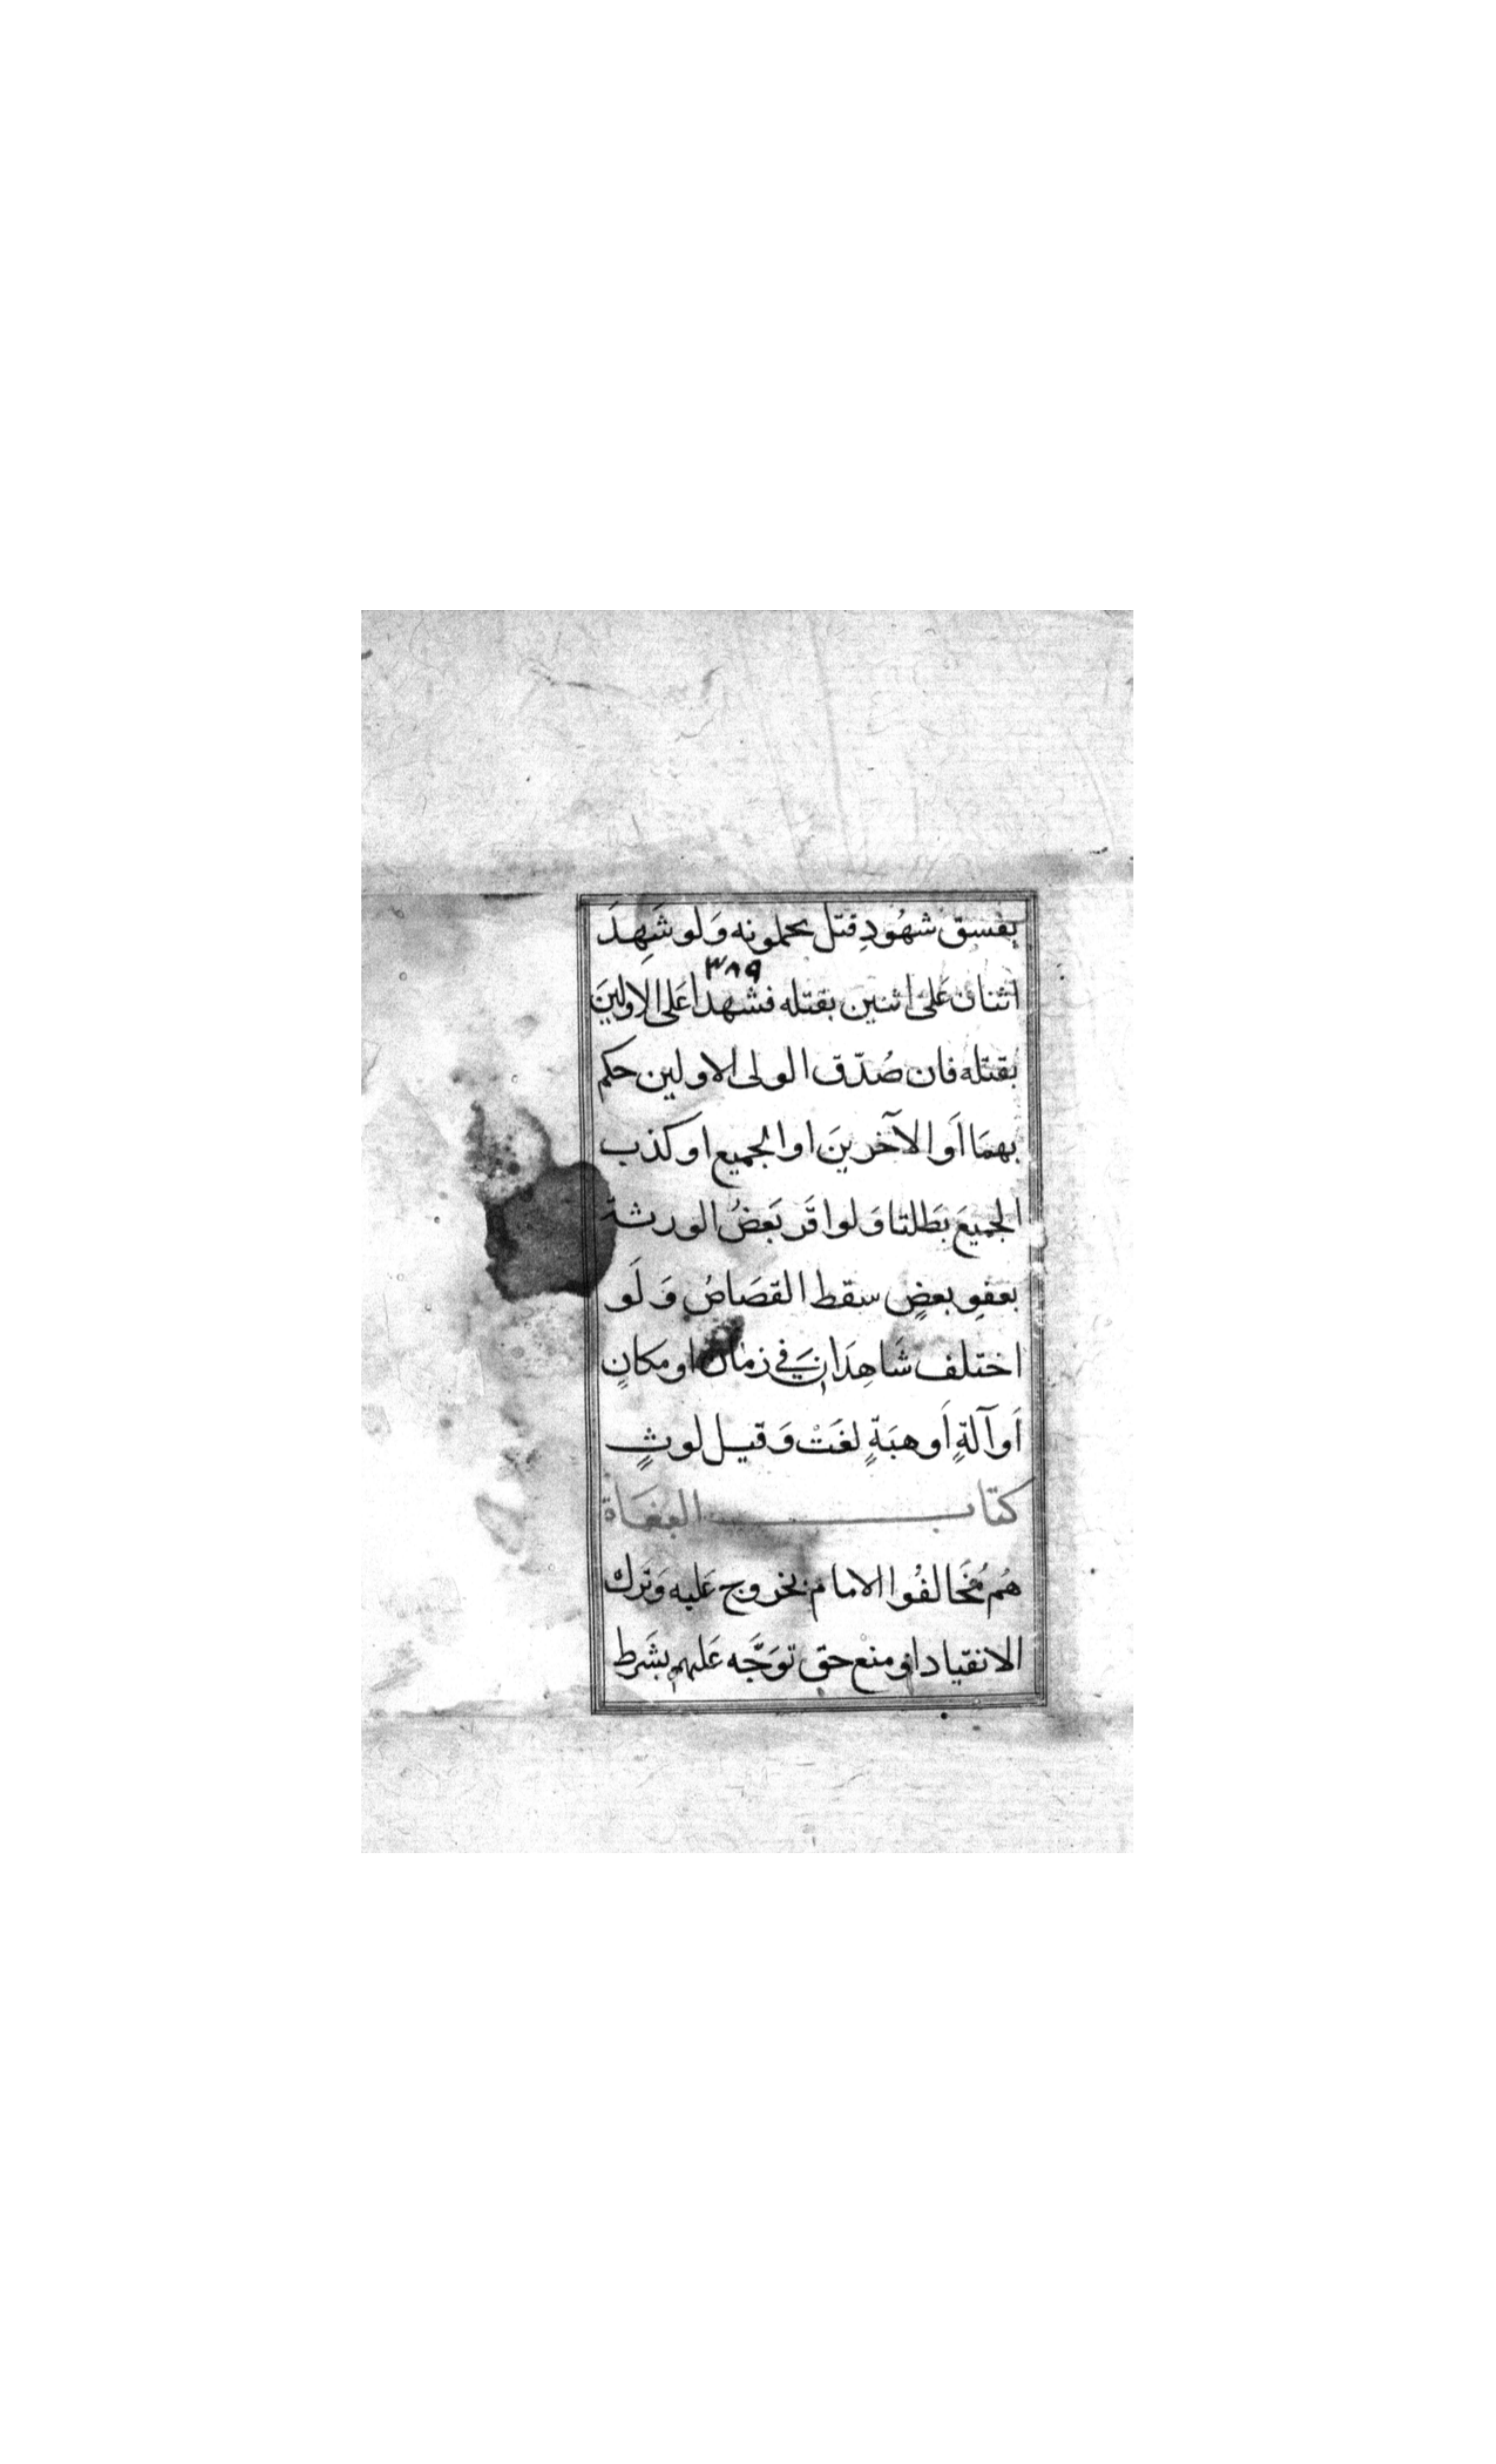 بفسق شهُودِ قتل يحملونه وَلو شَهِدَ
٣٨٩
اثنان عَلى اثنين بقتله فشهدا عَلى الاولينَ
بقتله فان صُدّق الولى الاولين حكم
بهمَا اَو الآخرينَ او الجميع او كذب
الجميعَ بَطلتا وَلو اقَر بَعضُ الورثة
بعفوِ بعضٍ سقط القصَاصُ وَلَو
اختلف شَاهِدَان في زمان او مكانٍ
اَو آلةٍ اَو هبَةٍ لغَتْ وَقيل لوثٍ
كتاب البغَاة
هُم مُخَالفُوا الامام بخروج عَليه وَترك
الانقياد او منع حق توَجَّه عَليهم بشَرط